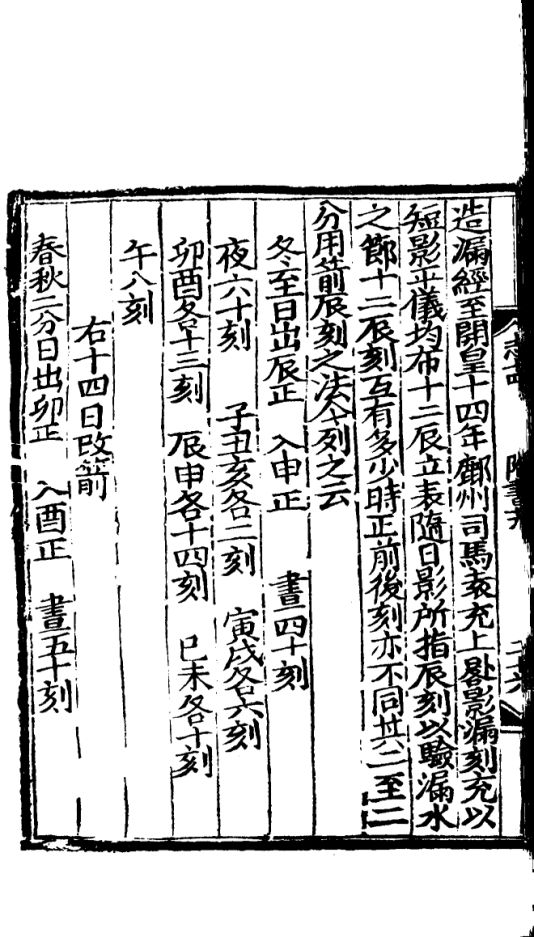 造漏經至開皇十四年鄜州司馬袁充上晷影漏刻充以
短影平儀均布十二辰立表隨日影所指辰刻以驗漏水
之節十二辰刻互有多少時正前後刻亦不同其二至二
分用箭辰刻之法今列之云
冬至日出辰正 入申正 晝四十刻
夜六十刻 子丑亥各二刻 寅戌各六刻
卯酉各十三刻 辰申各十四刻 巳未各十刻
午八刻
右十四日改箭
春秋二分日出卯正 入酉正 晝五十刻